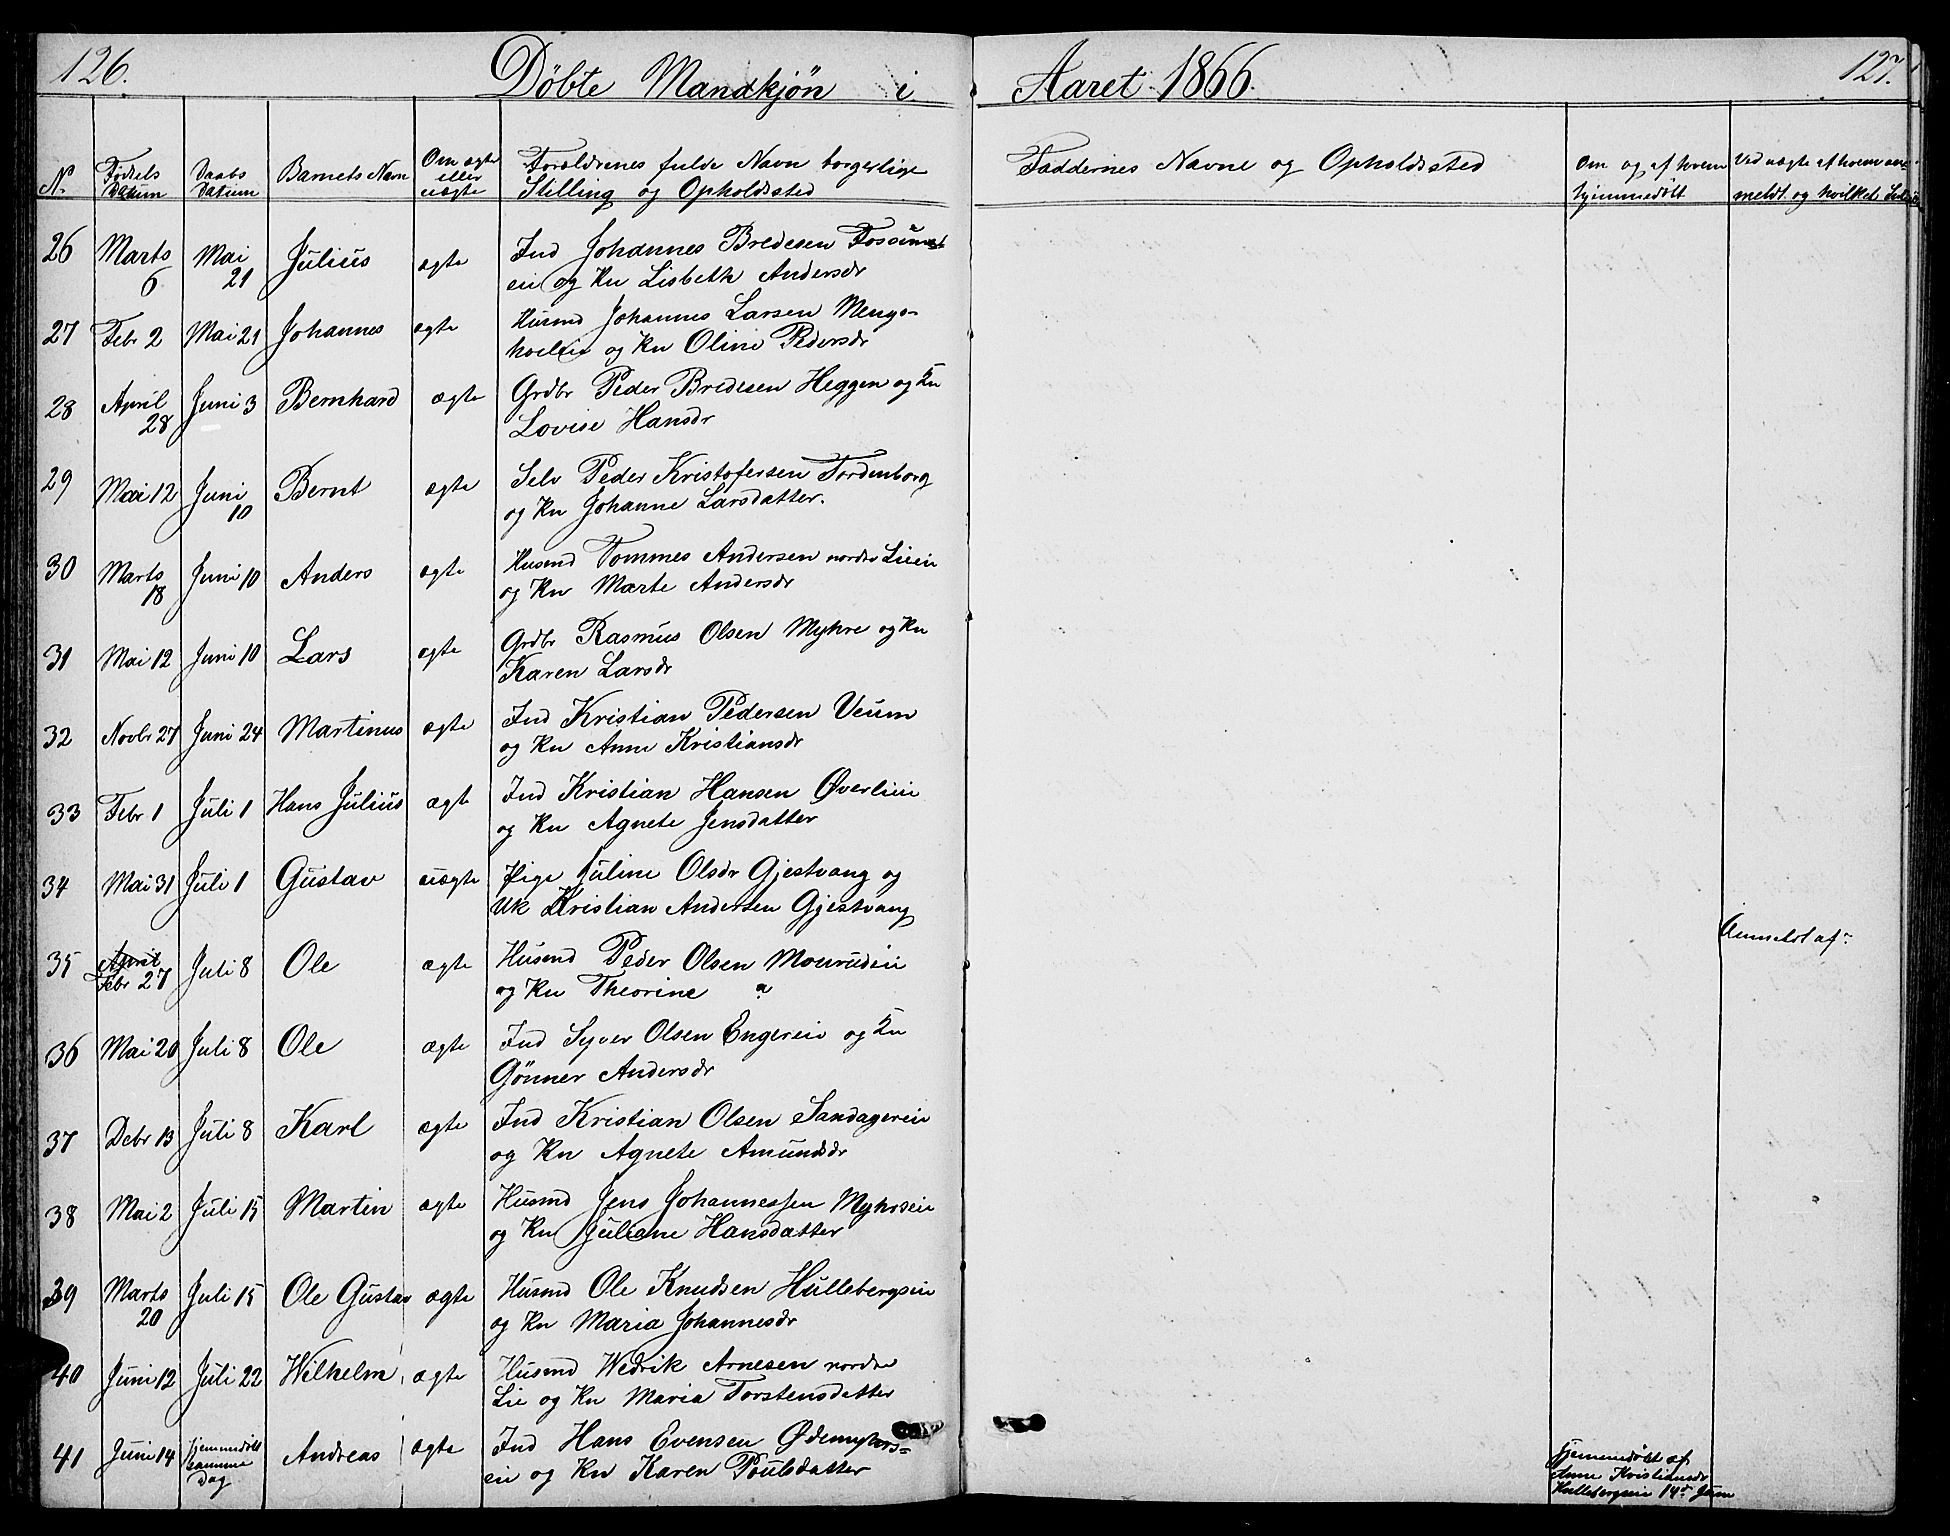 126.
Döbte Mandkjön i
Aaret 1866.
127.
N.
Födsels
Datum
Daabs
Datum
Barnets Navn
Om ægte
eller
uægte
Foraldrenes fulde Navn borgerlige
Stilling og Opholdssted
Faddernes Navne og Opholdssted
Om og af hvem
hjemmedöbt
Ved uægte af hvem an-
meldt og hvilket
26 Marts 6 Mai 21 Julius ægte Ind Johannes Bredesen
eie og Kn Lisbeth Andersdr
27 Febr 2 Mai 21 Johannes ægte Husmd Johannes Larsen Mengs-
hoeleie og Kn Oline Pedersdr
28 April 28 Juni 3 Bernhard ægte Grdbr Peder Bredesen Heggen og Kn
Lovise Hansdr
29 Mai 12 Juni 10 Bernt ægte Selv Peder Kristofersen Tordenborg
og Kn Johanne Larsdatter.
30 Marts 18 Juni 10 Anders ægte Husmd Tommes Andersen nordre Lieie
og Kn Marte Andersdr
31 Mai 12 Juni 10 Lars ægte Grdbr Rasmus Olsen Myhre og Kn
Karen Larsdr
32 Novbr 27 Juni 24 Martinus ægte Ind Kristian Pedersen Veum
og Kn Anne Kristiansdr
33 Febr 1 Juli 1 Hans Julius ægt Ind Kristian Hansen Øverlieie
og Kn Agnete Jensdatter
34 Mai 31 Juli 1 Gustav uægte Pige Juline Olsdr Gjestvang og
Uk Kristian Andersen Gjestvang
Anmeldt af
35 April Febr 27 Juli 8 Ole ægte Husmd Peder Olsen Mourudeie
og Kn Theorine
36 Mai 20 Juli 8 Ole ægte Ind Syver Olsen Engereie og Kn
Gönner Andersdr
37 Debr 13 Juli 8 Karl ægte Ind Kristian Olsen Sandagereie
og Kn Agnete Amundsdr
38 Mai 2 Juli 15 Martin ægte Husmd Jens Johannessen Myhrseie
og Kn Juliane Hansdatter
39 Marts 20 Juli 15 Ole Gustav ægte Husmd Ole Knudsen Hullebergseie
og Kn Maria Johannesdr
40 Juni 12 Juli 22 Wilhelm ægte Husmd Wedrik Arnesen nordre
Lie og Kn Maria Torstensdatter
41 Juni 14 hjemmedöbt samme Dag Andreas ægte Ind Hans Evensen Ødemyhrs-
eie og Kn Karen Poulsdatter
hjemmedöbt af
Anne Kristiansdr
Hullebergseie 14de Juni